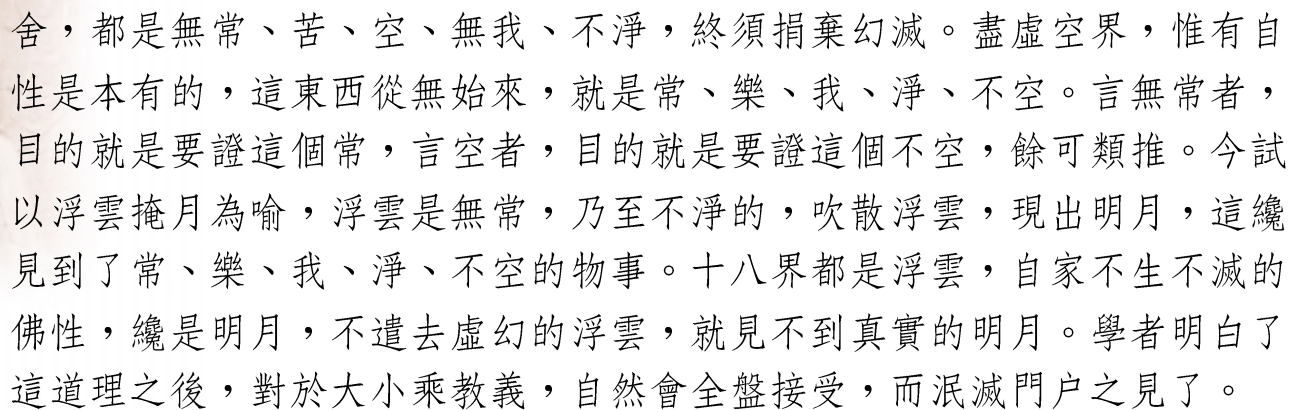 舍，都是無常、苦、空、無我、不淨，終須捐棄幻滅。盡虛空界，惟有自
性是本有的，這東西從無始來，就是常、樂、我、淨、不空。言無常者，
目的就是要證這個常，言空者，目的就是要證這個不空，餘可類推。今試
以浮雲掩月為喻，浮雲是無常，乃至不淨的，吹散浮雲，現出明月，這纔
見到了常、樂、我、淨、不空的物事。十八界都是浮雲，自家不生不滅的
佛性，纔是明月，不遣去虛幻的浮雲，就見不到真實的明月。學者明白了
這道理之後，對於大小乘教義，自然會全盤接受，而泯滅門户之見了。